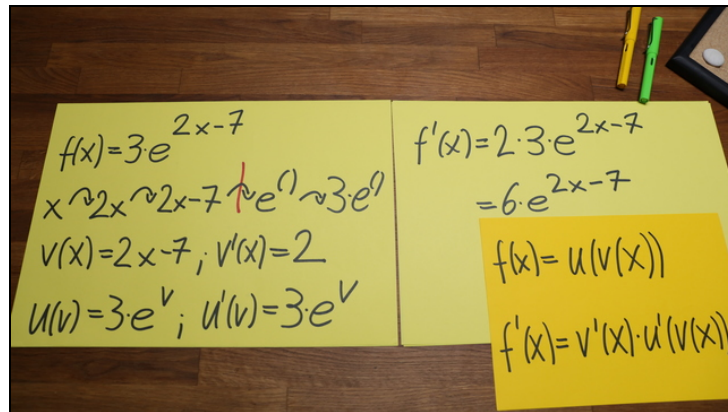 f(x)=3·e^{2x-7}
x↝2x↝2x-7↝e^{()}↝3·e^{()}
v(x)=2x-7; v'(x)=2
u(v)=3·e^v; u'(v)=3·e^v
f'(x)=2·3·e^{2x-7}
=6·e^{2x-7}
f(x)=u(v(x))
f'(x)=v'(x)·u'(v(x))